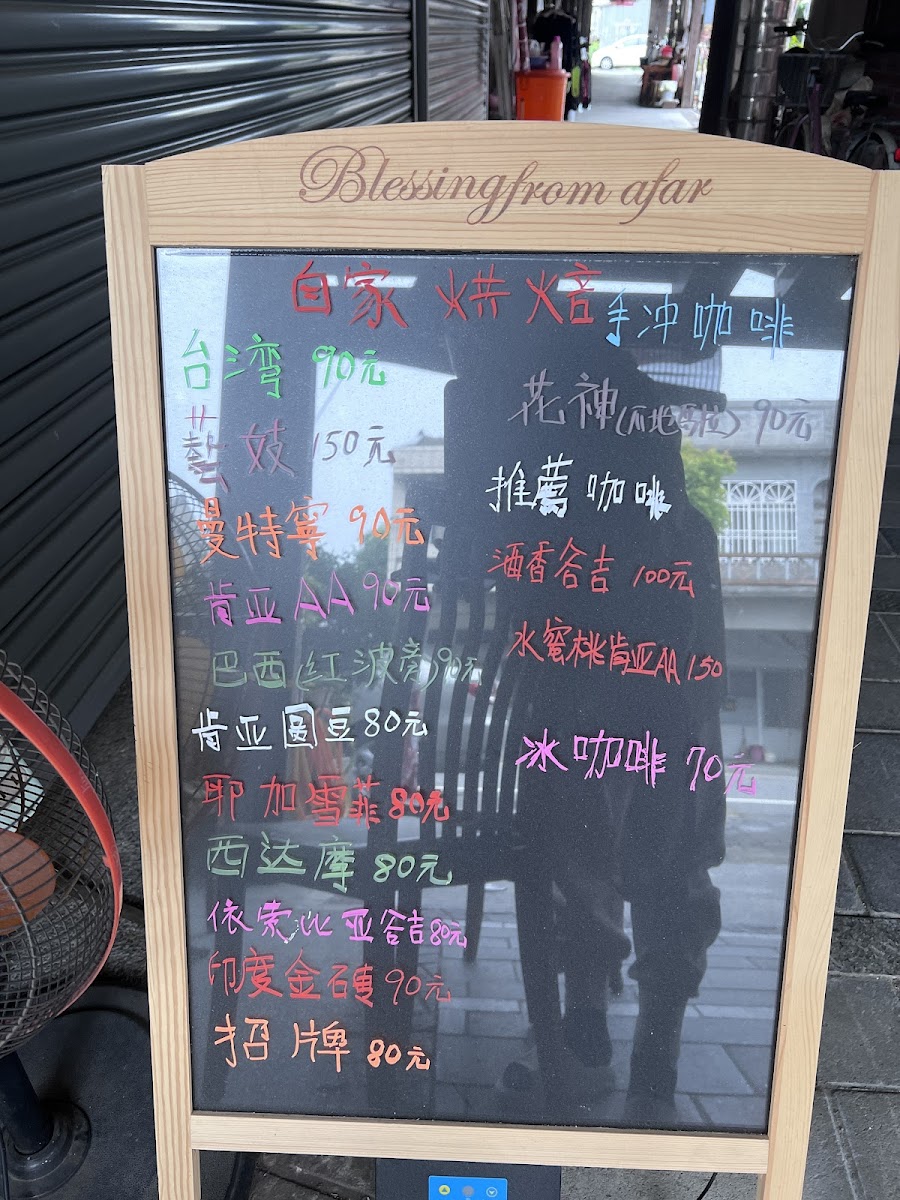 Blessing from afar
自家烘焙手冲咖啡
台湾 90元
藝妓 150元
曼特寧 90元
肯亚AA 90元
巴西(红波旁)90元
肯亚圆豆 80元
耶加雪菲 80元
西达摩 80元
依索比亚谷吉 80元
印度金磚 90元
招牌 80元
花神(瓜地马拉) 90元
推薦咖啡
酒香谷吉 100元
水蜜桃肯亚AA 150
冰咖啡 70元